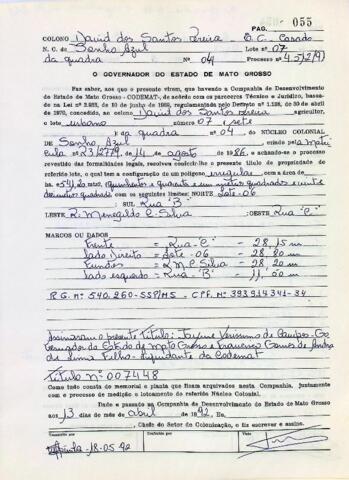 PAG. 055
COLONO David dos Santos Pereira - E.C. Casado
N. C. de Sonho Azul Lote nº 07
da quadra Nº 04 Processo nº 4.512/97
O GOVERNADOR DO ESTADO DE MATO GROSSO
Faz saber, aos que o presente virem, que havendo a Companhia de Desenvolvimento
do Estado de Mato Grosso - CODEMAT-, de acordo com os pareceres Técnico e Jurídico, basea-
do na Lei nº 2.925, de 10 de junho de 1968, regulamentada pelo Decreto nº 1.138, de 30 de abril
de 1970, concedido, ao colono David dos Santos Pereira agricultor,
o lote urbano número 07 sete
da quadra nº 04. do NÚCLEO COLONIAL
DE Sonho Azul criado pela Matri
cula nº 23/4779, 14 de agosto de 1986, e achando-se o processo
revestido das formalidades legais, resolveu conferir-lhe o presente título de propriedade do
referido lote, o qual tem a configuração de um polígono irregular com a área de
ha 541,20 metros, quinhentos e quarenta e um metros quadrados e vinte
decimetros quadrado com os seguintes limites: NORTE Lote-06
SUL Rua "B"
LESTE R. Menegildo C. Silva ; OESTE Rua "C"
MARCOS OU DADOS
Frente = Rua-"C" = 28,15 m
lado Direito = Lote-06 = 28,80 m
Fundos = R.M.C Silva = 28,20 m
lado esquerdo = Rua-"B" = 11,50 m
R.G. nº 540.260-SSP/MS - CPF. Nº 393914341-34
Assinaram o presente titulo: Jayme Verissimo de Campos-Go
vernador do Estado de Mato Grosso e Francisco Gomes de Andra
de Lima Filho - liquidante da Codemat
Titulo nº 007448
Como tudo consta do memorial e planta que ficam arquivados nesta Companhia, juntamente
com o processo de medição e loteamento do referido Núcleo Colonial.
Dado e passado na Companhia de Desenvolvimento do Estado de Mato Grosso
aos 13 dias do mês de abril de 1992. Eu,
, Chefe do Setor de Colonização, o fiz escrever e assino.
Transcrito por Conferido por Visto
18-05-92